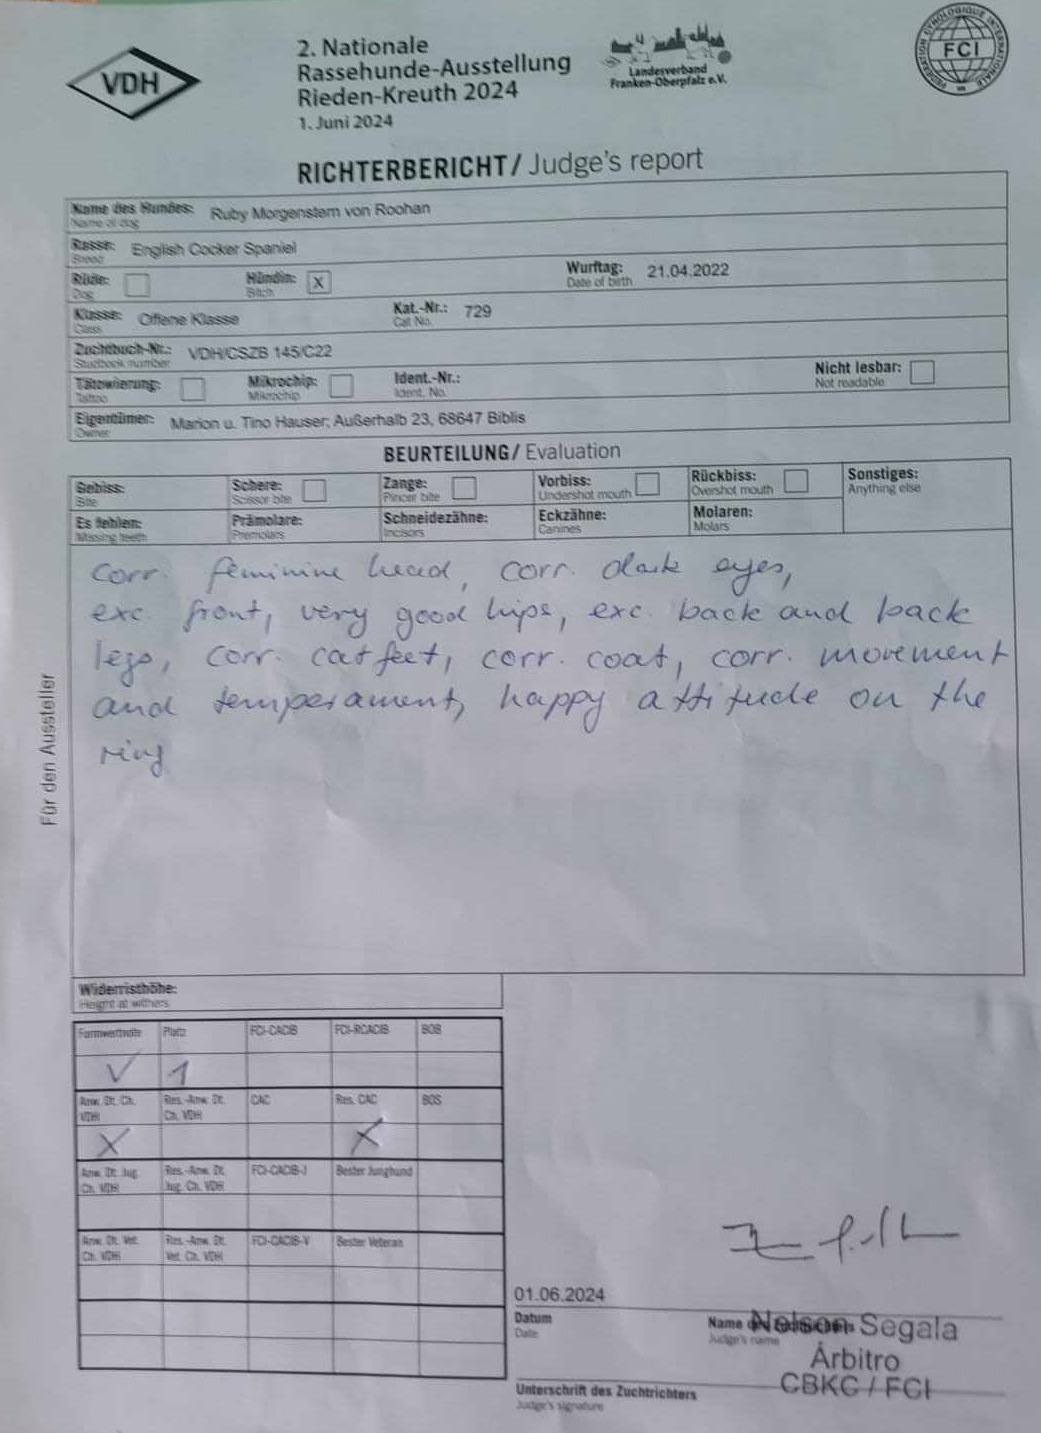 VDH
2. Nationale
Rassehunde-Ausstellung
Rieden-Kreuth 2024
1. Juni 2024
Landesverband
Franken-Oberpfalz e.V.
FEDERATION CYNOLOGIQUE INTERNATIONALE
FCI
RICHTERBERICHT/ Judge's report
Name des Hundes: Ruby Morgenstern von Roohan
Name of dog
Rasse: English Cocker Spaniel
Breed
Rüde: Hündin: X Wurftag: 21.04.2022
Dog Bitch Date of birth
Klasse: Offene Klasse Kat.-Nr.: 729
Class Cat No.
Zuchtbuch-Nr.: VDH/CSZB 145/C22
Studbook number
Tätowierung: Mikrochip: Ident.-Nr.: Nicht lesbar:
Tattoo Mikrochip Ident. No. Not readable
Eigentümer: Marion u. Tino Hauser; Außerhalb 23, 68647 Biblis
Owner
BEURTEILUNG/ Evaluation
Gebiss: Schere: Zange: Vorbiss: Rückbiss: Sonstiges:
Bite Scissor bite Pincer bite Undershot mouth Overshot mouth Anything else
Es fehlen: Prämolare: Schneidezähne: Eckzähne: Molaren:
Missing teeth Premolars Incisors Canines Molars
corr. feminine head, corr. dark eyes,
exc front, very good hips, exc. back and back
legs, corr. catfeet, corr. coat, corr. movement
and temperament, happy attitude on the
ring
Für den Aussteller
Widerristhöhe:
Height at withers
Formwertnote Platz FCI-CACIB FCI-RCACIB BOB
V 1
Anw. Dt. Ch. VDH Res.-Anw. Dt. Ch. VDH CAC Res. CAC BOS
X X
Anw. Dt. Jug. Ch. VDH Res.-Anw. Dt. Jug. Ch. VDH FCI-CACIB-J Bester Junghund
Anw. Dt. Vet. Ch. VDH Res.-Anw. Dt. Vet. Ch. VDH FCI-CACIB-V Bester Veteran
01.06.2024
Datum
Date
Name des Zuchtrichters
Judge's name
Nelson Segala
Árbitro
CBKC / FCI
Unterschrift des Zuchtrichters
Judge's signature